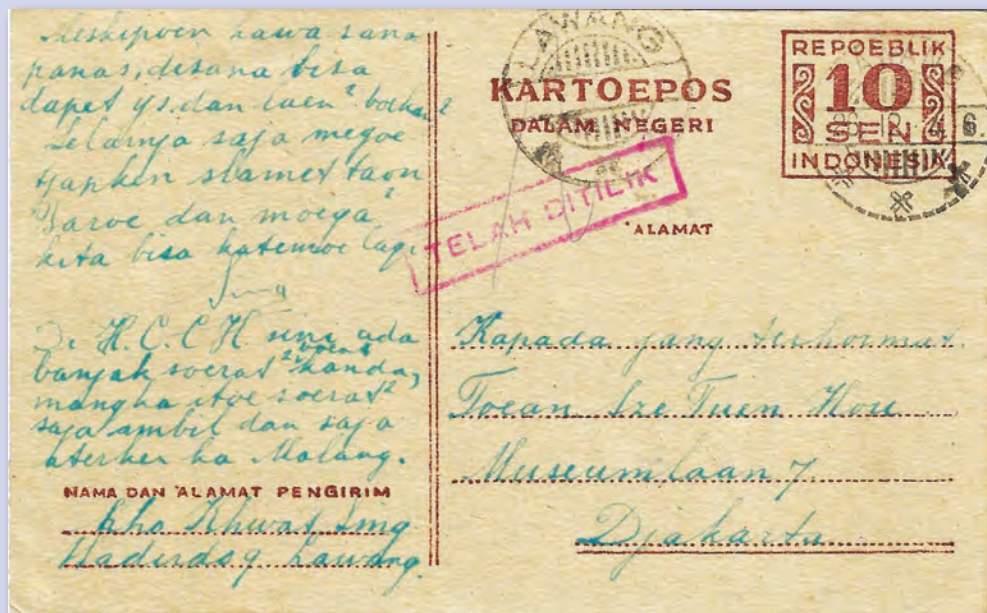 Meskipoen hawa sana
panas, disana bisa
dapet ijs dan laen² boekan²
Selarnja saja megoe
tjapken slamet taon
baroe dan moega²
kita bisa katemoe lagi.
Di H.C.C.H sini ada
banjak soerat² boeat
kanda,
mangka itoe soerat²
saja ambil dan saja
aterken ka Malang.
NAMA DAN ALAMAT PENGIRIM
Kho Khwat Sing
Lawang.
LAWANG
KARTOEPOS
DALAM NEGERI
REPOEBLIK
10
SEN
INDONESIA
TELAH DITILIK
ALAMAT
Kapada jang terhormat.
Toean Sze Tuen Hou
Museumlaan 7.
Djakarta